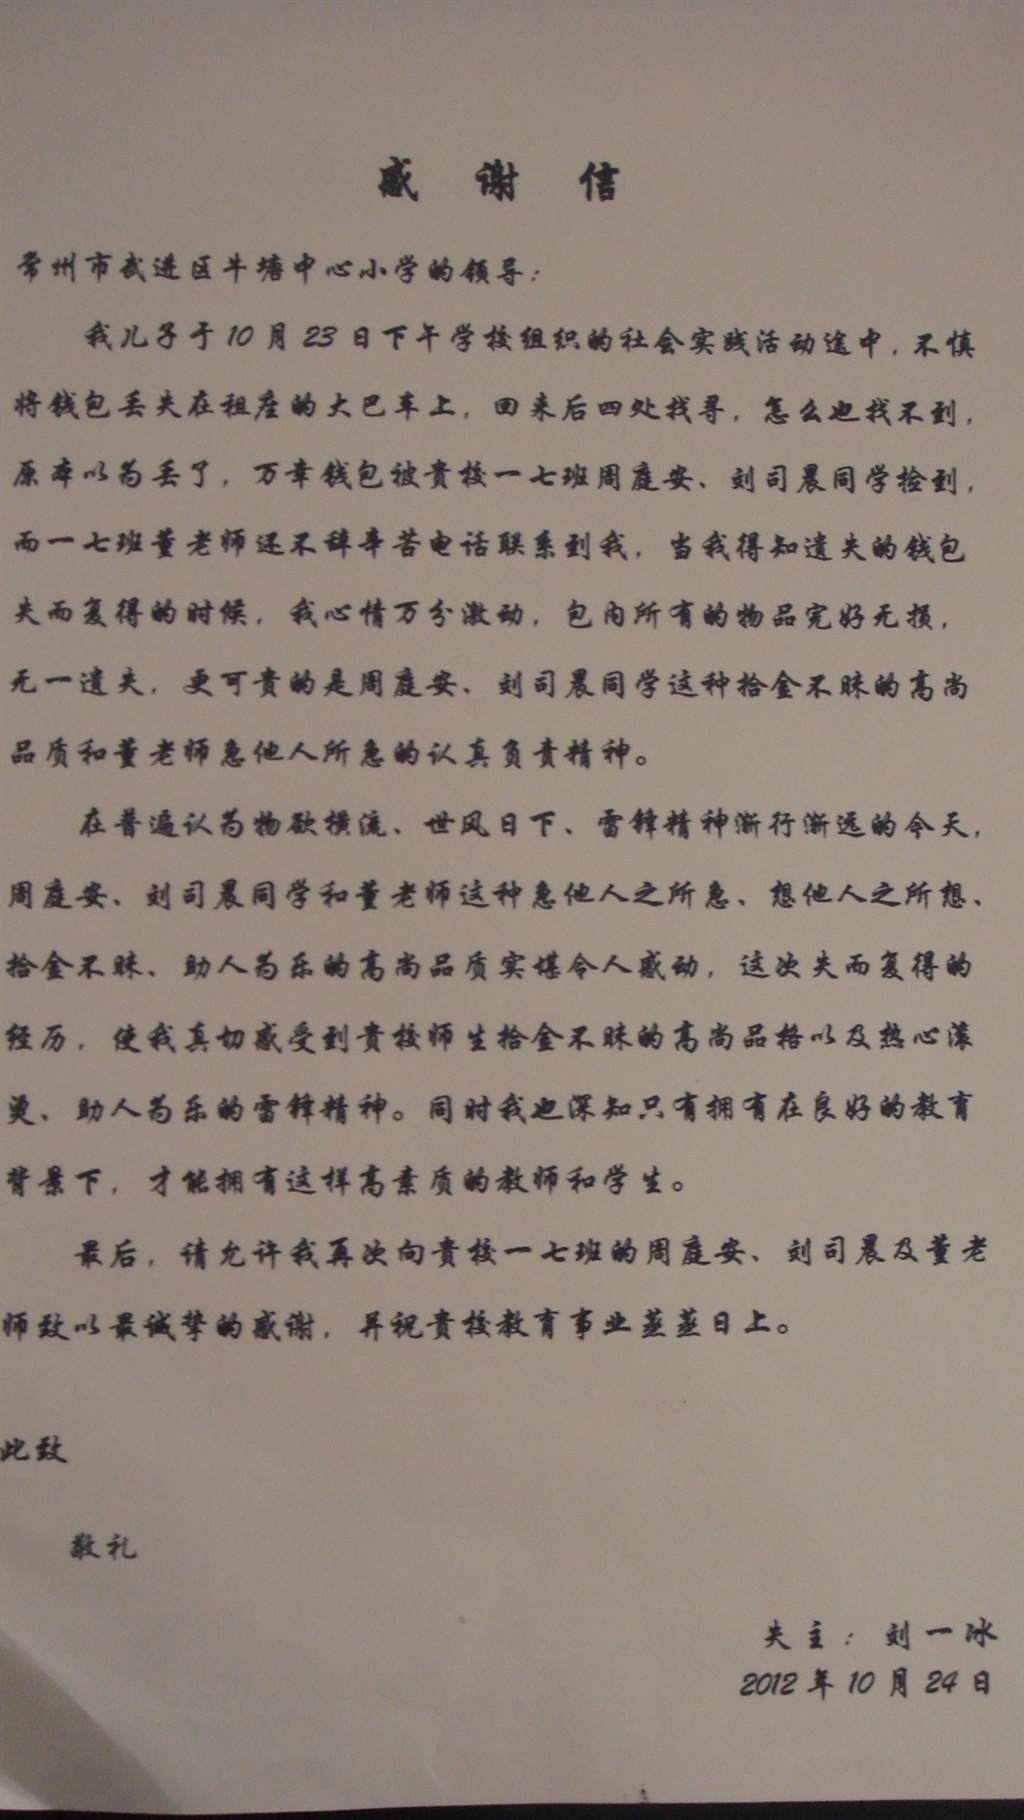 感谢信
常州市武进区牛塘中心小学的领导：
我儿子于10月23日下午学校组织的社会实践活动途中，不慎
将钱包丢失在租座的大巴车上，回来后四处找寻，怎么也找不到，
原本以为丢了，万幸钱包被贵校一七班周庭安、刘司晨同学捡到，
而一七班董老师还不辞辛苦电话联系到我，当我得知遗失的钱包
失而复得的时候，我心情万分激动，包内所有的物品完好无损，
无一遗失，更可贵的是周庭安、刘司晨同学这种拾金不昧的高尚
品质和董老师急他人所急的认真负责精神。
在普遍认为物欲横流、世风日下、雷锋精神渐行渐远的今天，
周庭安、刘司晨同学和董老师这种急他人之所急、想他人之所想、
拾金不昧、助人为乐的高尚品质实堪令人感动，这次失而复得的
经历，使我真切感受到贵校师生拾金不昧的高尚品格以及热心滚
烫、助人为乐的雷锋精神。同时我也深知只有拥有在良好的教育
背景下，才能拥有这样高素质的教师和学生。
最后，请允许我再次向贵校一七班的周庭安、刘司晨及董老
师致以最诚挚的感谢，并祝贵校教育事业蒸蒸日上。
此致
敬礼
失主：刘一冰
2012年10月24日